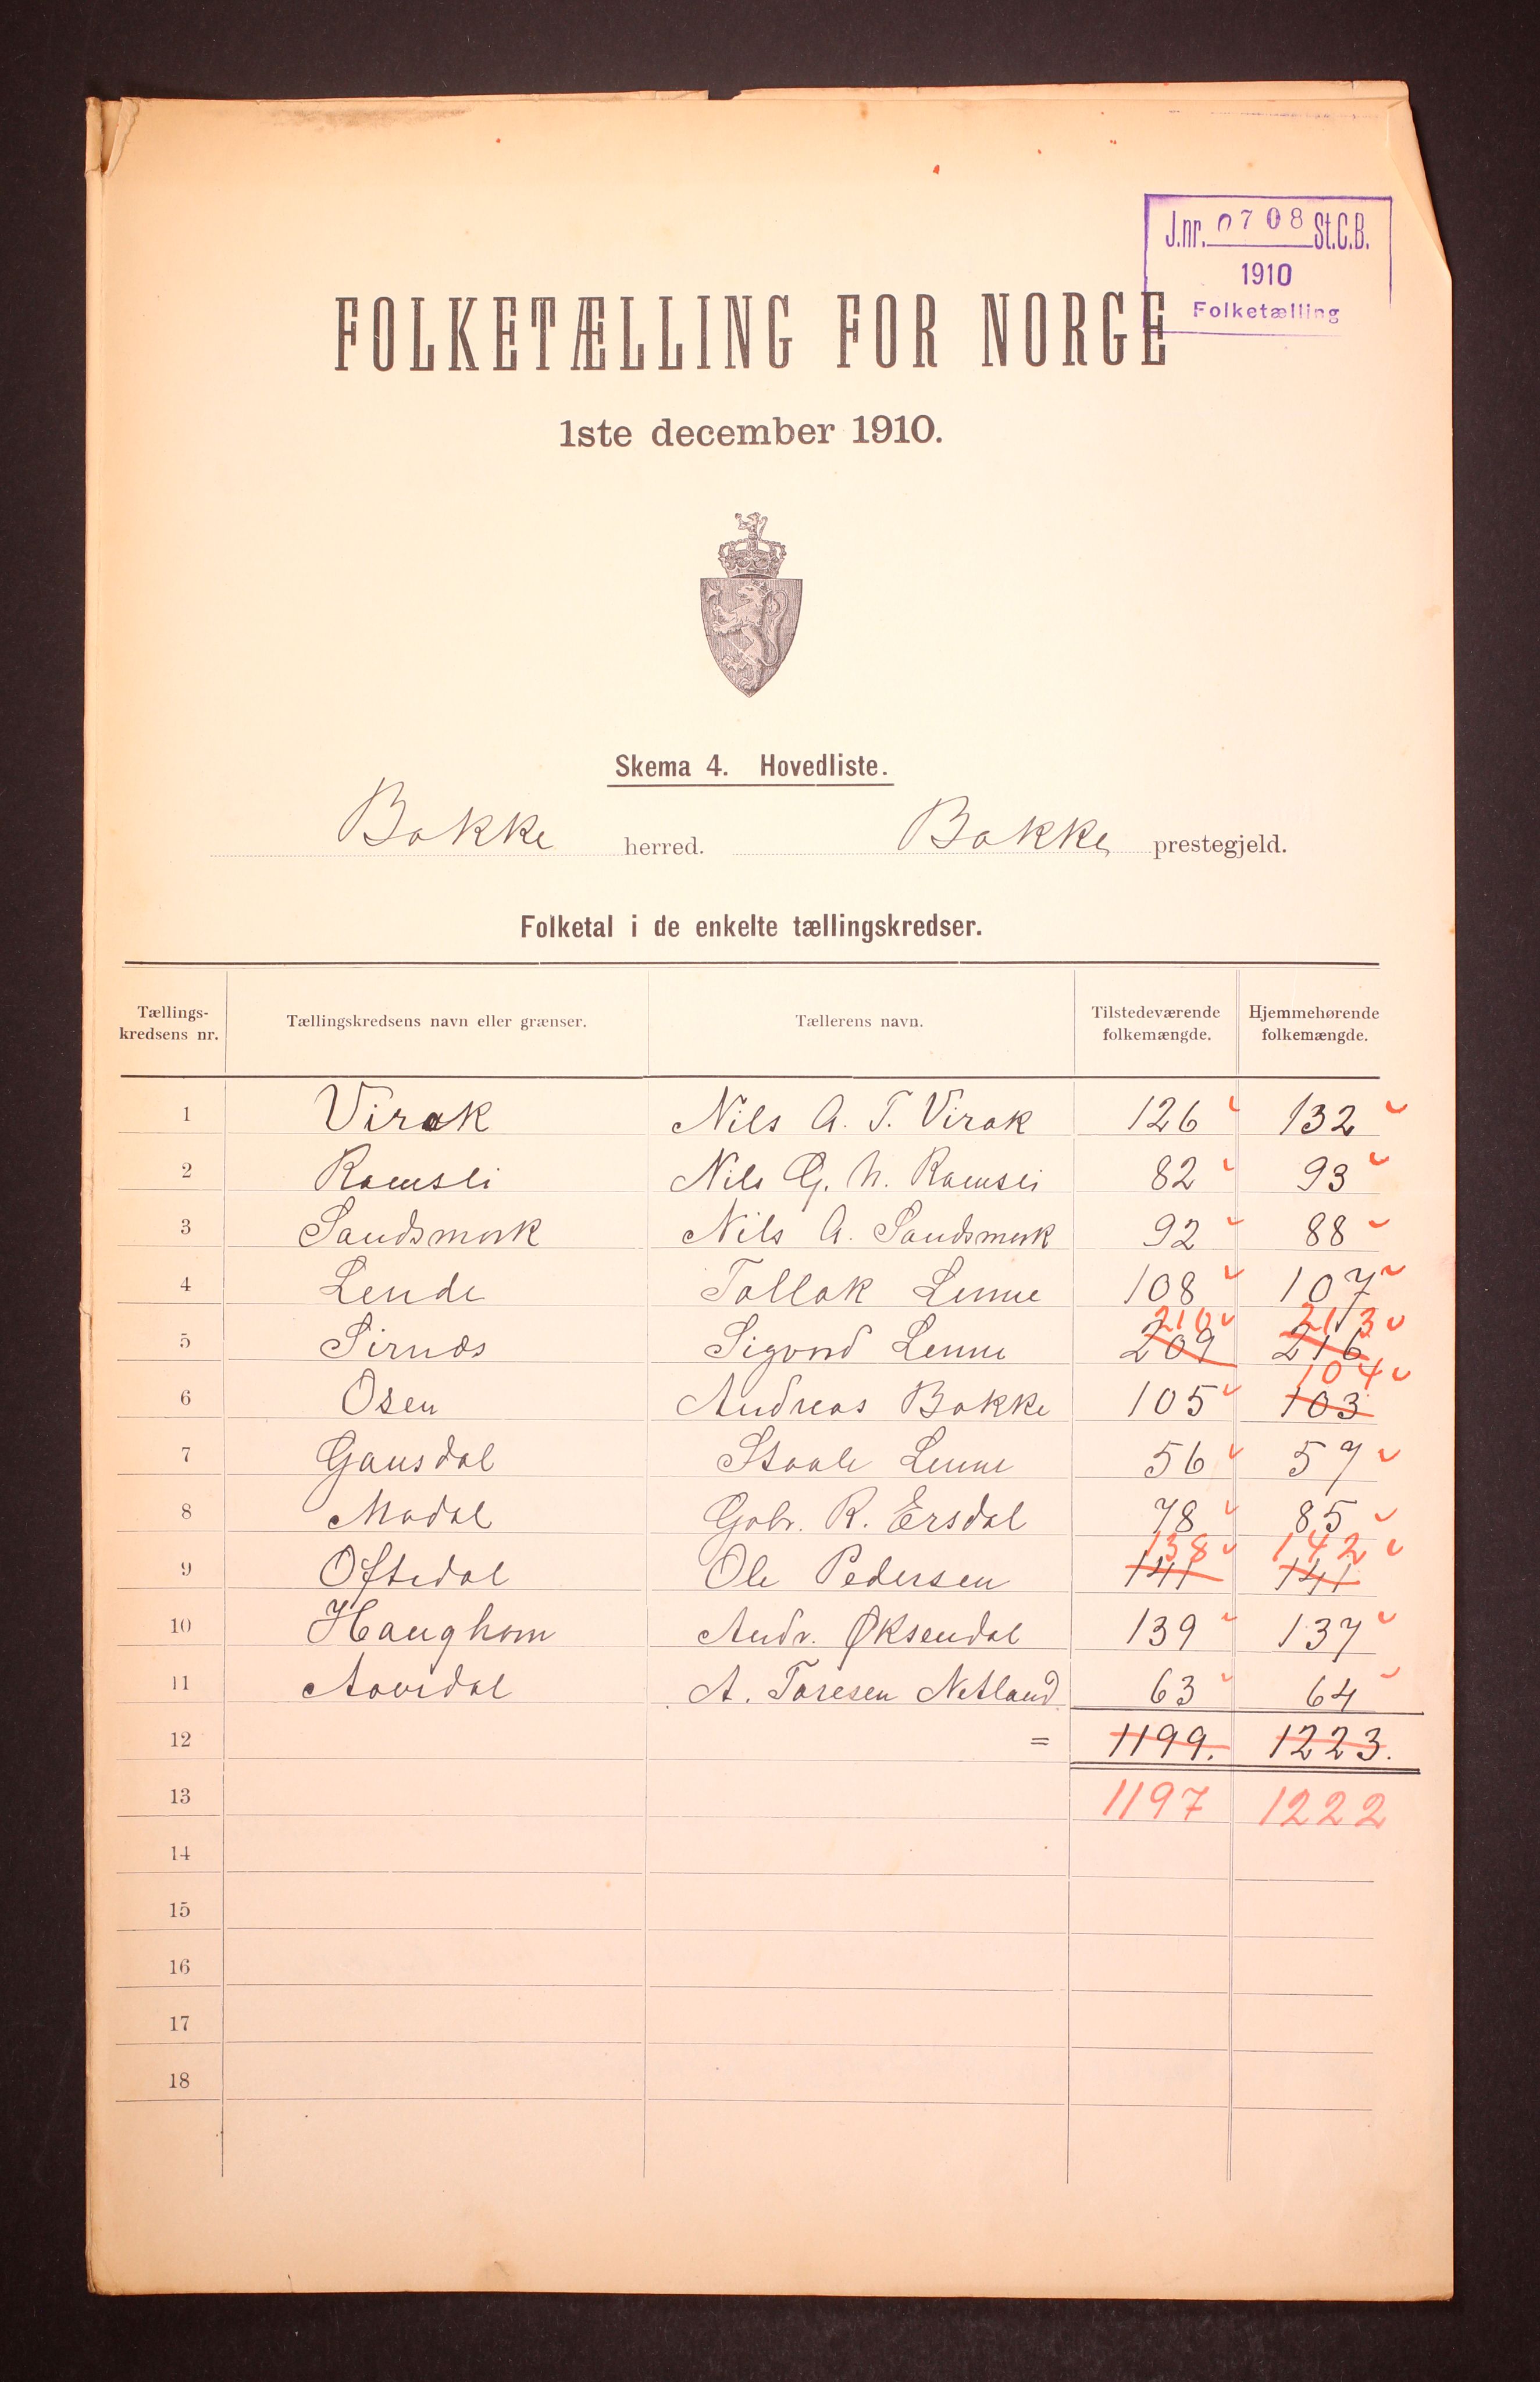 J.nr. 0708 St.C.B.
1910
Folketælling
FOLKETÆLLING FOR NORGE
1ste december 1910.
Skema 4. Hovedliste.
Bakke herred. Bakke prestegjeld.
Folketal i de enkelte tællingskredser.
Tællings-kredsens nr. Tællingskredsens navn eller grænser. Tællerens navn. Tilstedeværende folkemængde. Hjemmehørende folkemængde.
1 Virak Nils A. T. Virak 126 132
2 Ramsli Nils G. N. Ramsli 82 93
3 Sandsmark Nils A. Sandsmark 92 88
4 Lende Tollak Lunne 108 107
210 213
5 Sirnæs Sigvard Lunne 209 216
104
6 Osen Andreas Bakke 105 103
7 Gausdal Staale Lunne 56 57
8 Modal Gabr. R. Ersdal 78 85
138 142
9 Oftedal Ole Pedersen 141 141
10 Haughom Andr. Øksendal 139 137
11 Aavedal A. Taresen Netland 63 64
12 = 1199. 1223.
13 1197 1222
14
15
16
17
18